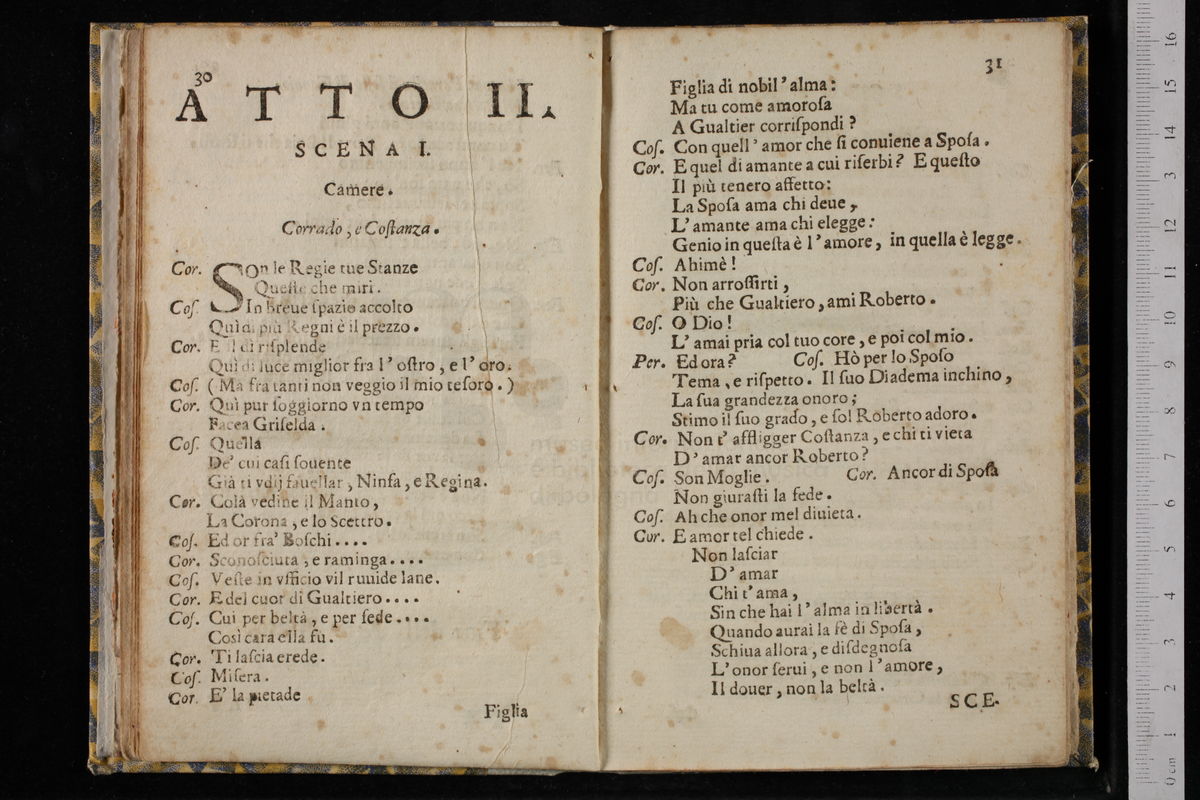 30
ATTO II.
SCENA I.
Camere.
Corrado, e Coſtanza.
Cor. SOn le Regie tue Stanze
Queſte che miri.
Coſ. In breue ſpazio accolto
Quì di più Regni è il prezzo.
Cor. E il dì riſplende
Quì di luce miglior fra l'oſtro, e l'oro.
Coſ. (Ma fra tanti non veggio il mio teſoro.)
Cor. Quì pur ſoggiorno vn tempo
Facea Griſelda.
Coſ. Quella
De' cui caſi ſouente
Già ti vdij fauellar, Ninfa, e Regina.
Cor. Colà vedine il Manto,
La Corona, e lo Scettro.
Coſ. Ed or fra' Boſchi....
Cor. Sconoſciuta, e raminga....
Coſ. Veſte in vfficio vil ruuide lane.
Cor. E del cuor di Gualtiero....
Coſ. Cui per beltà, e per fede....
Così cara ella fu.
Cor. Ti laſcia erede.
Coſ. Miſera.
Cor. E' la pietade
Figlia
31
Figlia di nobil'alma:
Ma tu come amoroſa
A Gualtier corriſpondi?
Coſ. Con quell'amor che ſi conuiene a Spoſa.
Cor. E quel di amante a cui riſerbi? E queſto
Il più tenero affetto:
La Spoſa ama chi deue,
L'amante ama chi elegge:
Genio in queſta è l'amore, in quella è legge.
Coſ. Ahimè!
Cor. Non arroſſirti,
Più che Gualtiero, ami Roberto.
Coſ. O Dio!
L'amai pria col tuo core, e poi col mio.
Per. Ed ora? Coſ. Hò per lo Spoſo
Tema, e riſpetto. Il ſuo Diadema inchino,
La ſua grandezza onoro;
Stimo il ſuo grado, e ſol Roberto adoro.
Cor. Non t'affligger Coſtanza, e chi ti vieta
D'amar ancor Roberto?
Coſ. Son Moglie. Cor. Ancor di Spoſa
Non giuraſti la fede.
Coſ. Ah che onor mel diuieta.
Cor. E amor tel chiede.
Non laſciar
D'amar
Chi t'ama,
Sin che hai l'alma in libertà.
Quando aurai la fè di Spoſa,
Schiua allora, e diſdegnoſa
L'onor ſerui, e non l'amore,
Il douer, non la beltà.
SCE-